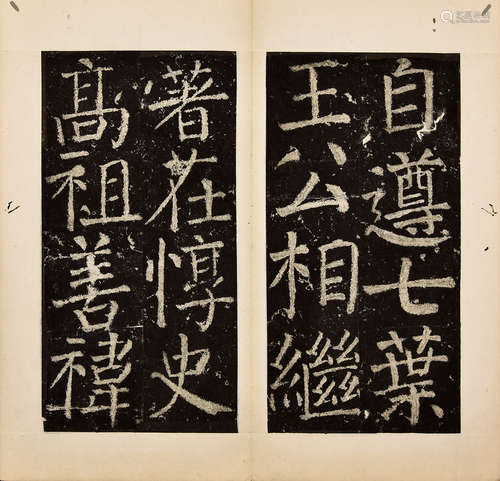 自遵七葉
王公相繼
著在惇史
高祖善禕